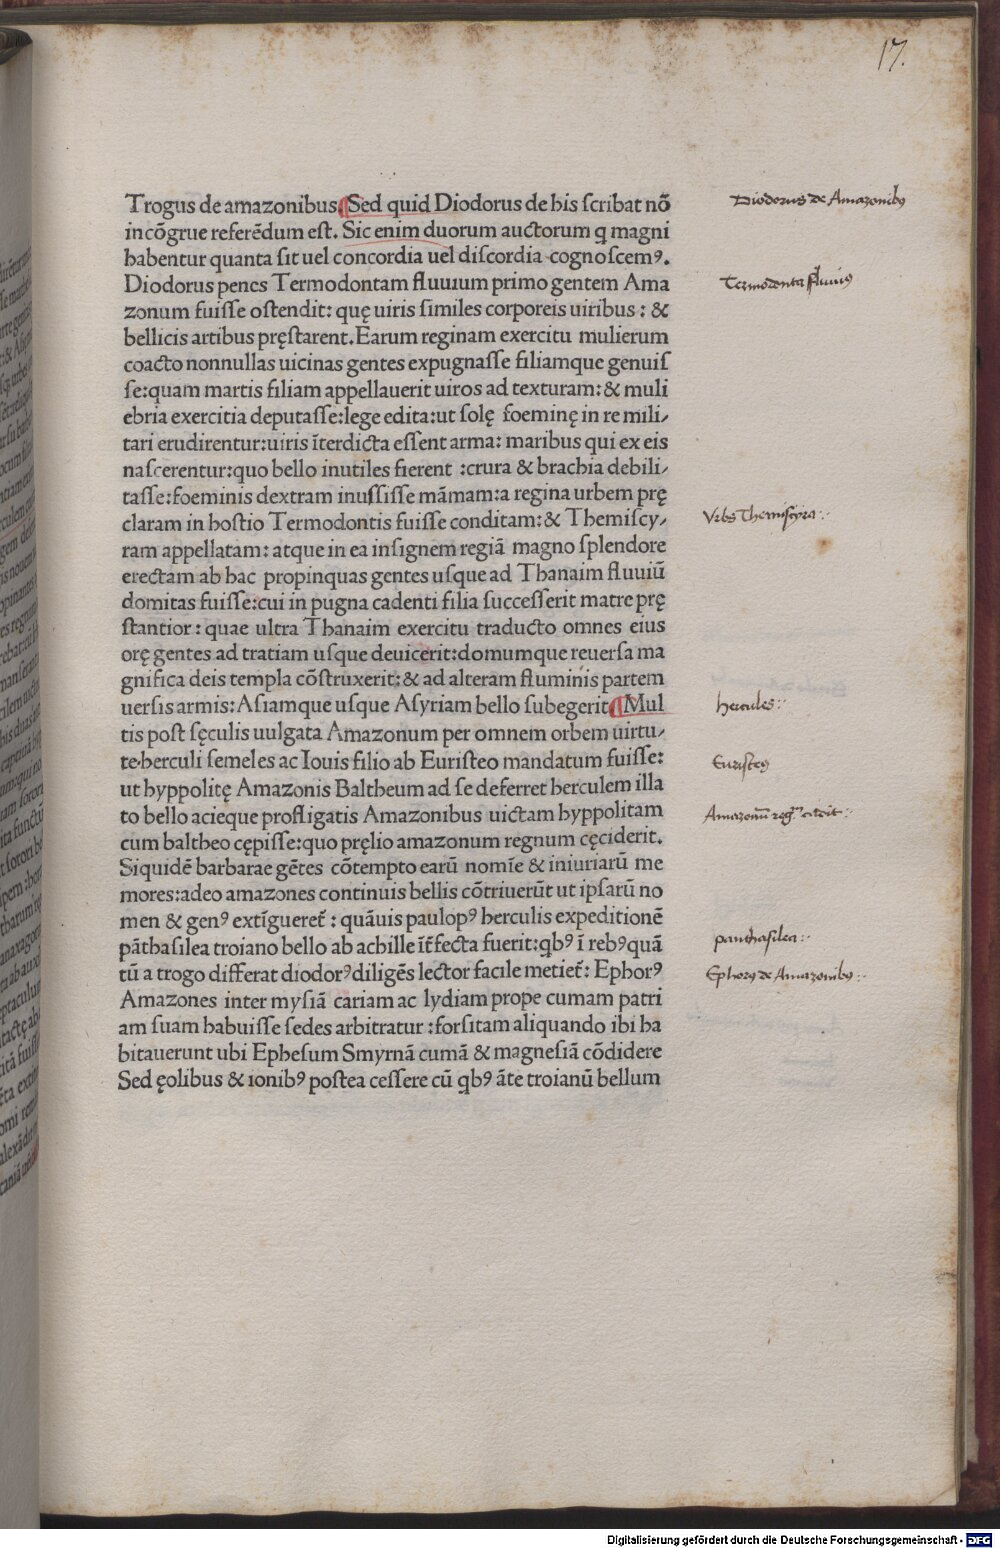 17.
Trogus de amazonibus. Sed quid Diodorus de his scribat nō
incōgrue referēdum est. Sic enim duorum auctorum q magni
habentur quanta sit uel concordia uel discordia cognoscemꝰ.
Diodorus penes Termodontam fluuium primo gentem Ama
zonum fuisse ostendit: quę uiris similes corporeis uiribus: &
bellicis artibus pręstarent. Earum reginam exercitu mulierum
coacto nonnullas uicinas gentes expugnasse filiamque genuis
se: quam martis filiam appellauerit uiros ad texturam: & muli
ebria exercitia deputasse: lege edita: ut solę foeminę in re mili/
tari erudirentur: uiris īterdicta essent arma: maribus qui ex eis
nascerentur: quo bello inutiles fierent : crura & brachia debili/
tasse: foeminis dextram inussisse māmam: a regina urbem prę
claram in hostio Termodontis fuisse conditam: & Themiscy/
ram appellatam: atque in ea insignem regiā magno splendore
erectam ab hac propinquas gentes usque ad Thanaim fluuiū
domitas fuisse: cui in pugna cadenti filia successerit matre prę
stantior: quae ultra Thanaim exercitu traducto omnes eius
orę gentes ad tratiam usque deuicerit: domumque reuersa ma
gnifica deis templa cōstruxerit: & ad alteram fluminis partem
uersis armis: Asiamque usque Asyriam bello subegerit. Mul
tis post sęculis uulgata Amazonum per omnem orbem uirtu/
te herculi semeles ac Iouis filio ab Euristeo mandatum fuisse:
ut hyppolitę Amazonis Baltheum ad se deferret herculem illa
to bello acieque profligatis Amazonibus uictam hyppolitam
cum baltheo cępisse: quo pręlio amazonum regnum cęciderit.
Siquidē barbarae gētes cōtempto earū nomīe & iniuriarū me
mores: adeo amazones continuis bellis cōtriuerūt ut ipsarū no
men & genꝰ extīgueret̄ : quāuis paulopꝰ herculis expeditionē
pāthasilea troiano bello ab achille īt̄fecta fuerit: qbꝰ ī rebꝰ quā
tū a trogo differat diodorꝰ diligēs lector facile metiet̄: Ephorꝰ
Amazones inter mysiā cariam ac lydiam prope cumam patri
am suam habuisse sedes arbitratur: forsitam aliquando ibi ha
bitauerunt ubi Ephesum Smyrnā cumā & magnesiā cōdidere
Sed ęolibus & ionibꝰ postea cessere cū qbꝰ āte troianū bellum
Diodorus de Amazonibꝰ
Termodonta fluuius
Vrbs Themiscyra
hercules
Euristeꝰ
Amazonū regᵐ cecidit
panthasilea
Ephorꝰ de Amazonibꝰ
Digitalisierung gefördert durch die Deutsche Forschungsgemeinschaft - DFG